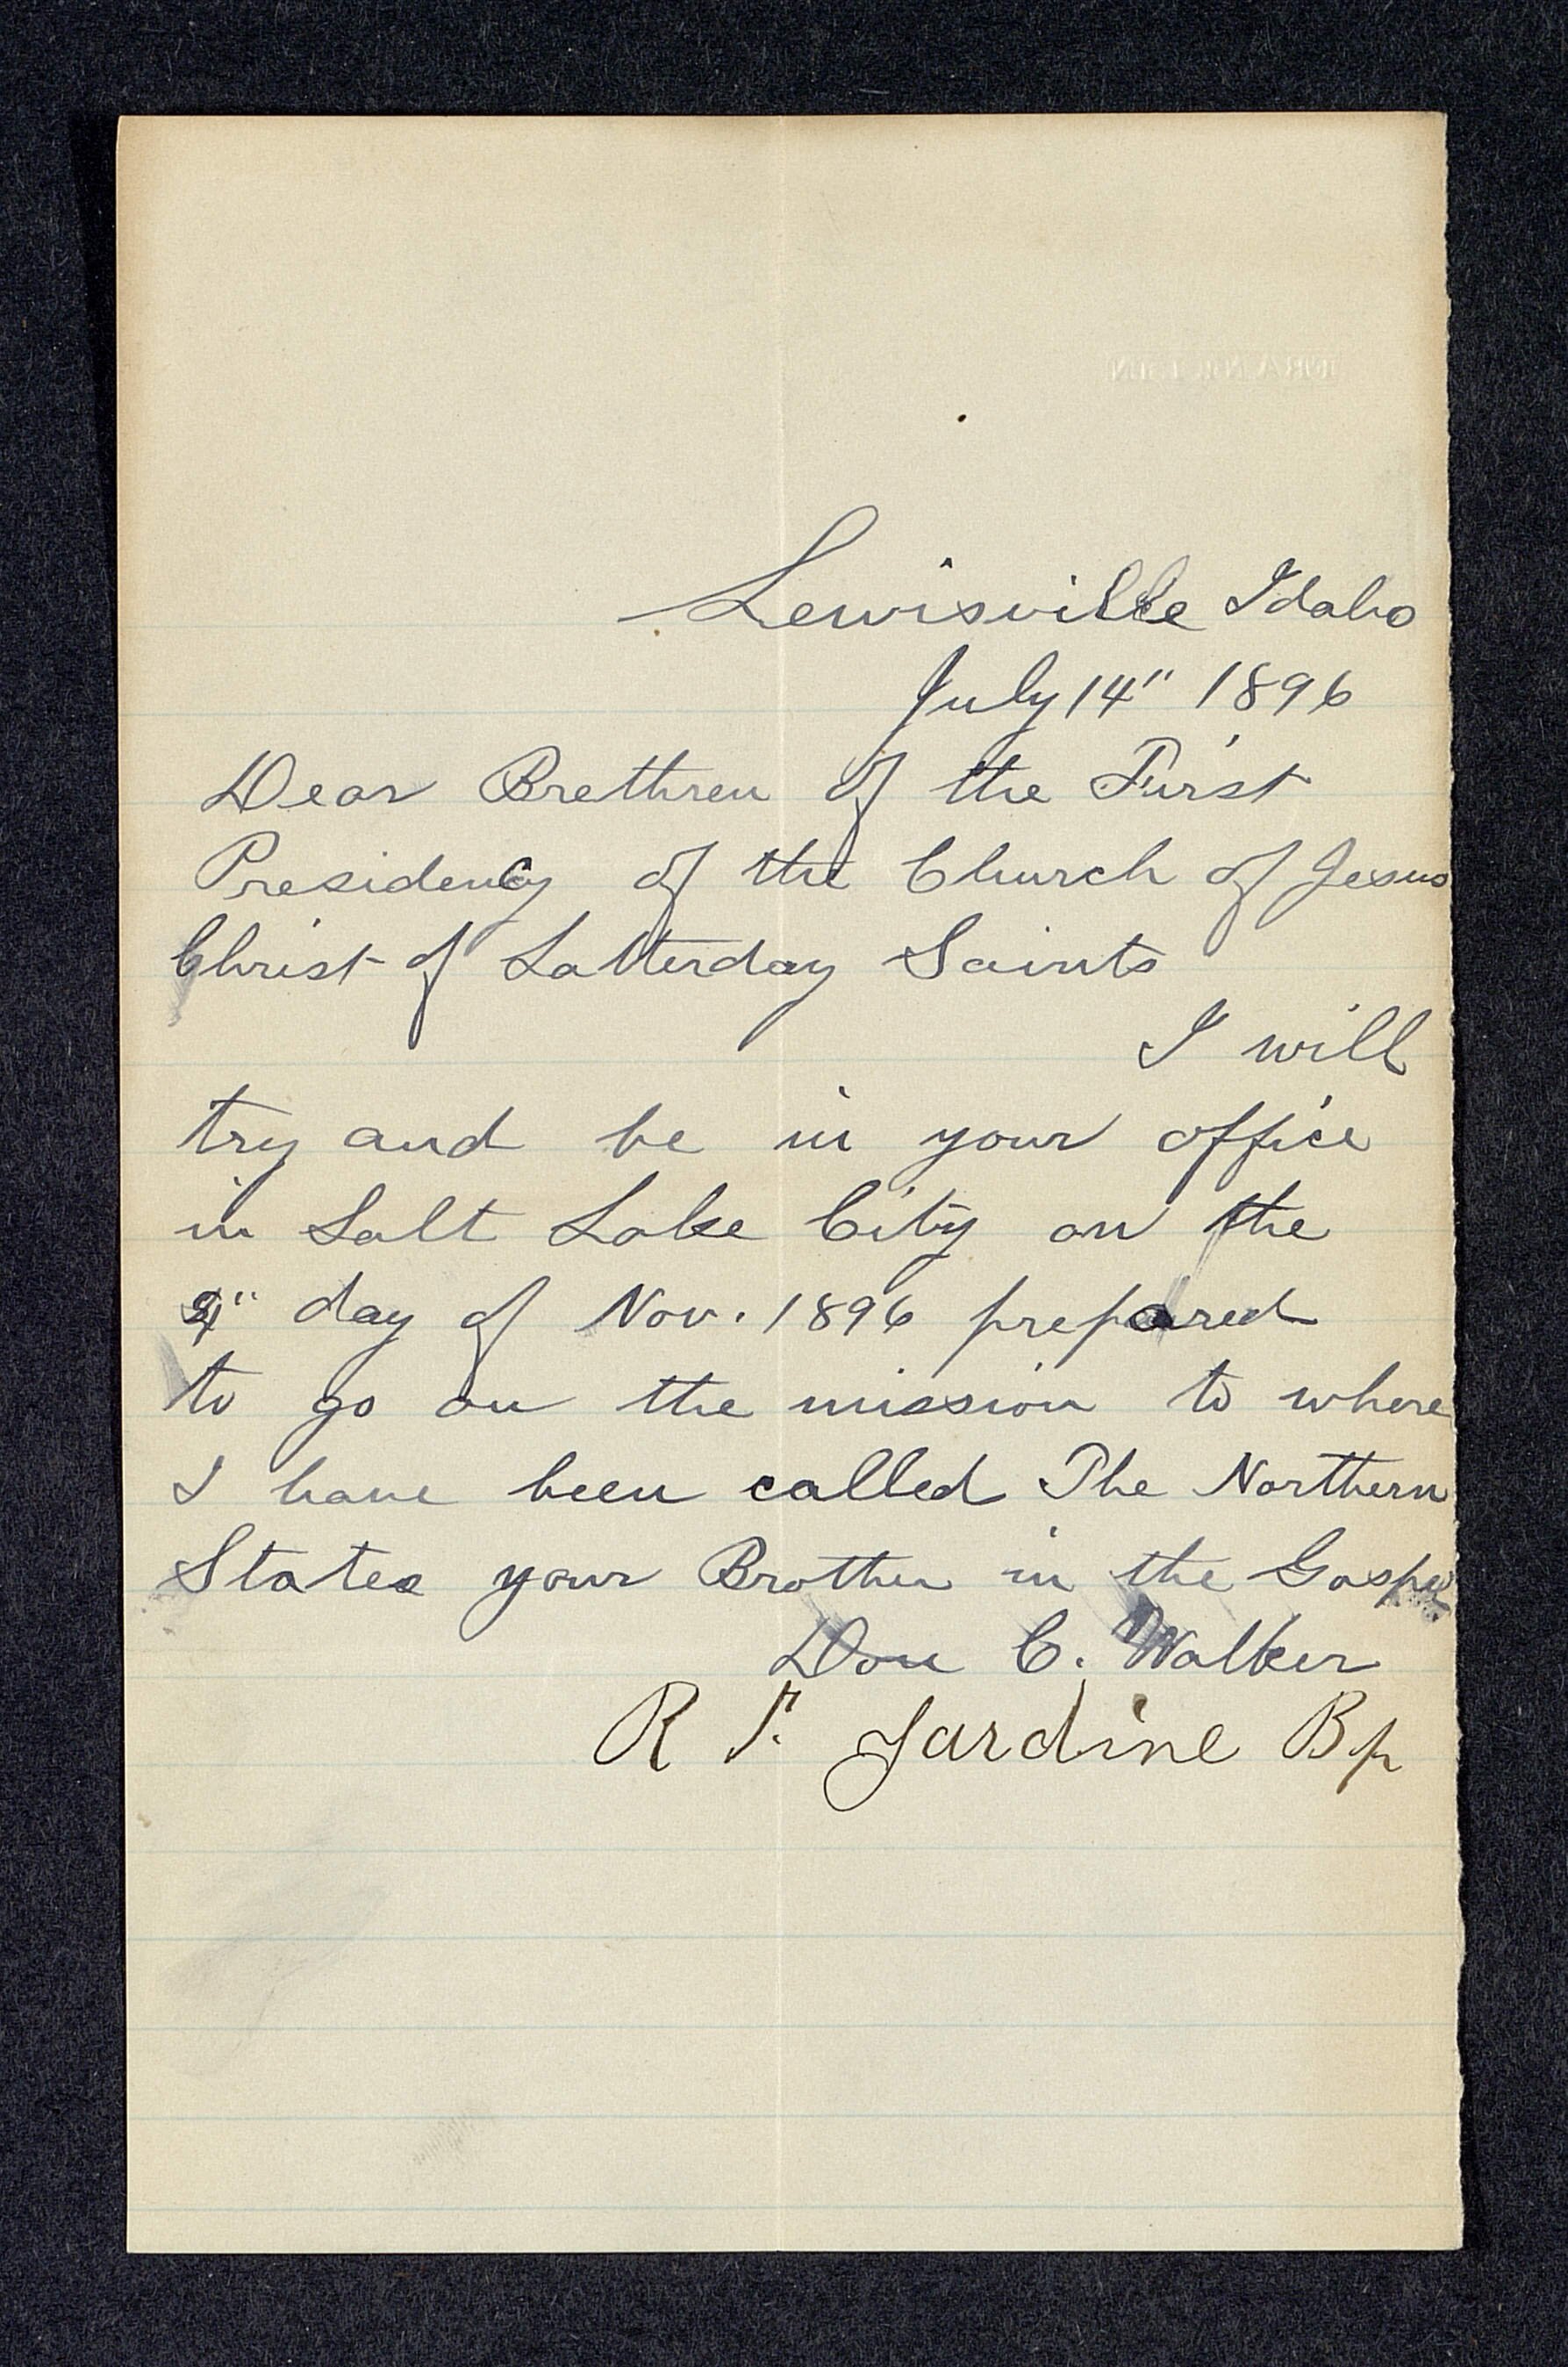 Lewisville Idaho
July 14" 1896
Dear Brethren of the First
Presidency of the Church of Jesus
Christ of Latterday Saints
I will
try and be in your office
in Salt Lake City on the
day of Nov. 1896 prepared
to go on the mission to where
I have been called The Northern
States your Brother in the Gospel
Don C. Walker
R F. Jardine Bp